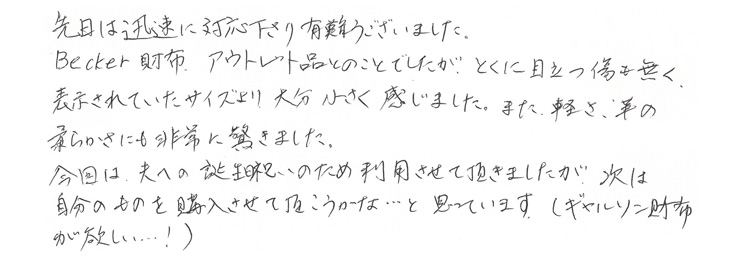 先日は迅速に対応下さり有難うございました。
Becker財布、アウトレット品とのことでしたが、とくに目立つ傷も無く、
表示されていたサイズより大分小さく感じました。また、軽さ、革の
柔らかさにも非常に驚きました。
今回は、夫への誕生祝いのため利用させて頂きましたが、次は
自分のものを購入させて頂こうかな…と思っています。(ギャルソン財布
が欲しい…!)